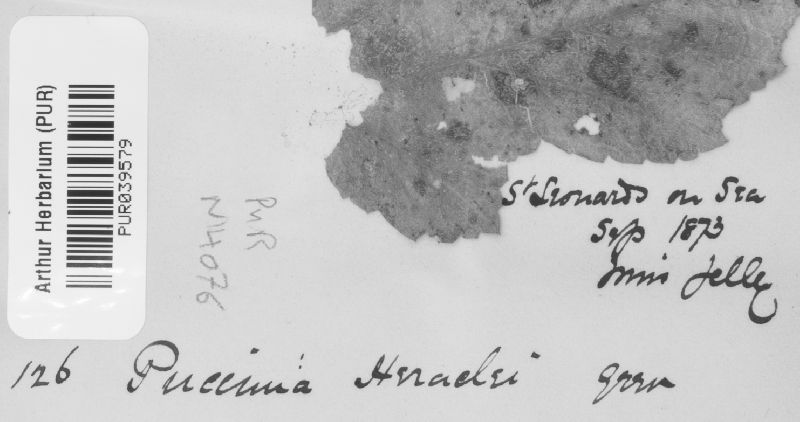 Arthur Herbarium (PUR)
PUR039579
PUR
N14076
St Leonards on Sea
Sep 1873
Miss Jelly
126 Puccinia Heraclei Grev